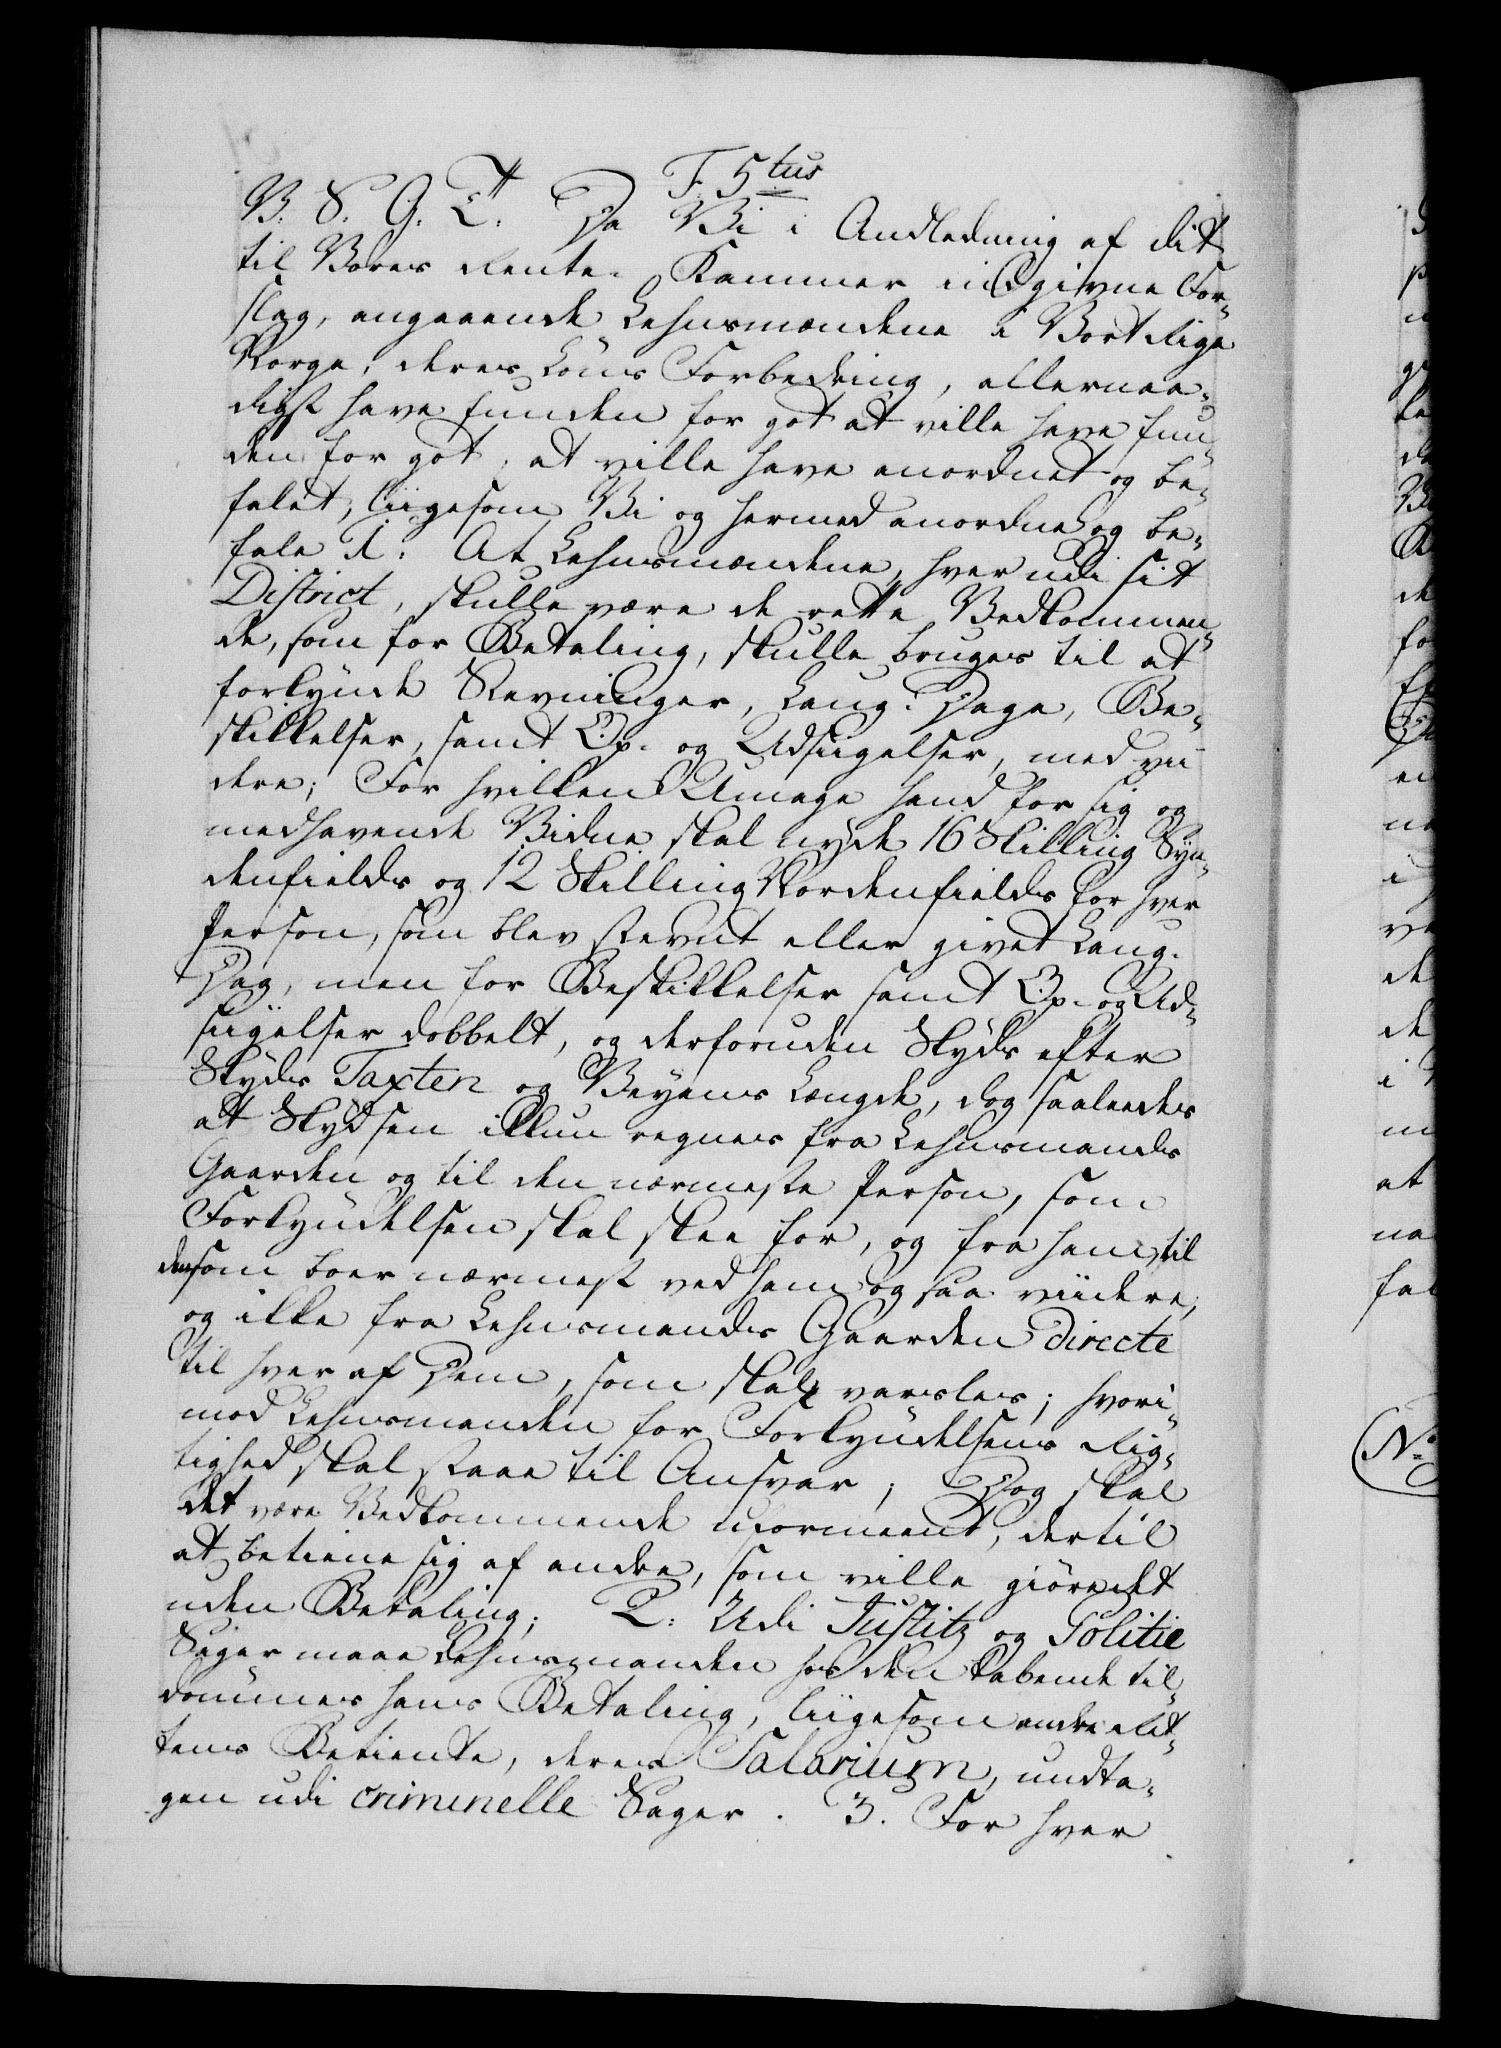 F. 5tus
V. S. G. T. Da Vi i Andledning af dit
til Vores Rente-Kammer indgivne For-
slag, angaaende Lehnsmændene i Vort Rige
Norge, deres Løns Forbedring, allernaa-
digst have funden for got at ville have fun-
den for got, at ville have anordnet og be-
falet, liigesom Vi og hermed anordne og be-
fale 1. At Lehnsmændene, hver udi sit
District, skulle være de rette Vedkommen-
de, som for Betaling, skulle bruges til at
forkynde Stevninger, Laug-Dage, Be-
skikkelser, samt Op- og Udsiigelser, med vii-
dere; For hvilken Umage hand for sig og
medhavende Vidne skal nyde 16 Skilling Syn-
denfields og 12 Skilling Nordenfields for hver
Person, som blev stevnt eller givet Laug-
Dag, men for Beskikkelser samt Op- og Ud-
siigelser dobbelt, og derforuden Skyds efter
Skyds Taxten og Veyens Længde, dog saaledes
at Skydsen ikkun regnes fra Lehnsmands
Gaarden og til den nærmeste Person, som
Forkyndelsen skal skee for, og fra ham til
den som boer nærmest ved ham og saa viidere,
og ikke fra Lehnsmands Gaarden directe
til hver af Dem, som skal varsles; hvori-
mod Lehnsmanden for Forkyndelsens Rig-
tighed skal staae til Ansvar; Dog skal
det være Vedkommende uformeent, dertil
at betiene sig af andre, som ville giøre det
uden Betaling; 2: Udi Justitz og Politie
Sager maae Lehnsmanden hos den tabende til-
dømmes hans Betaling, liigesom andre Ret-
tens Betiente, deres Salarium, undta-
gen udi criminelle Sager. 3. For hver